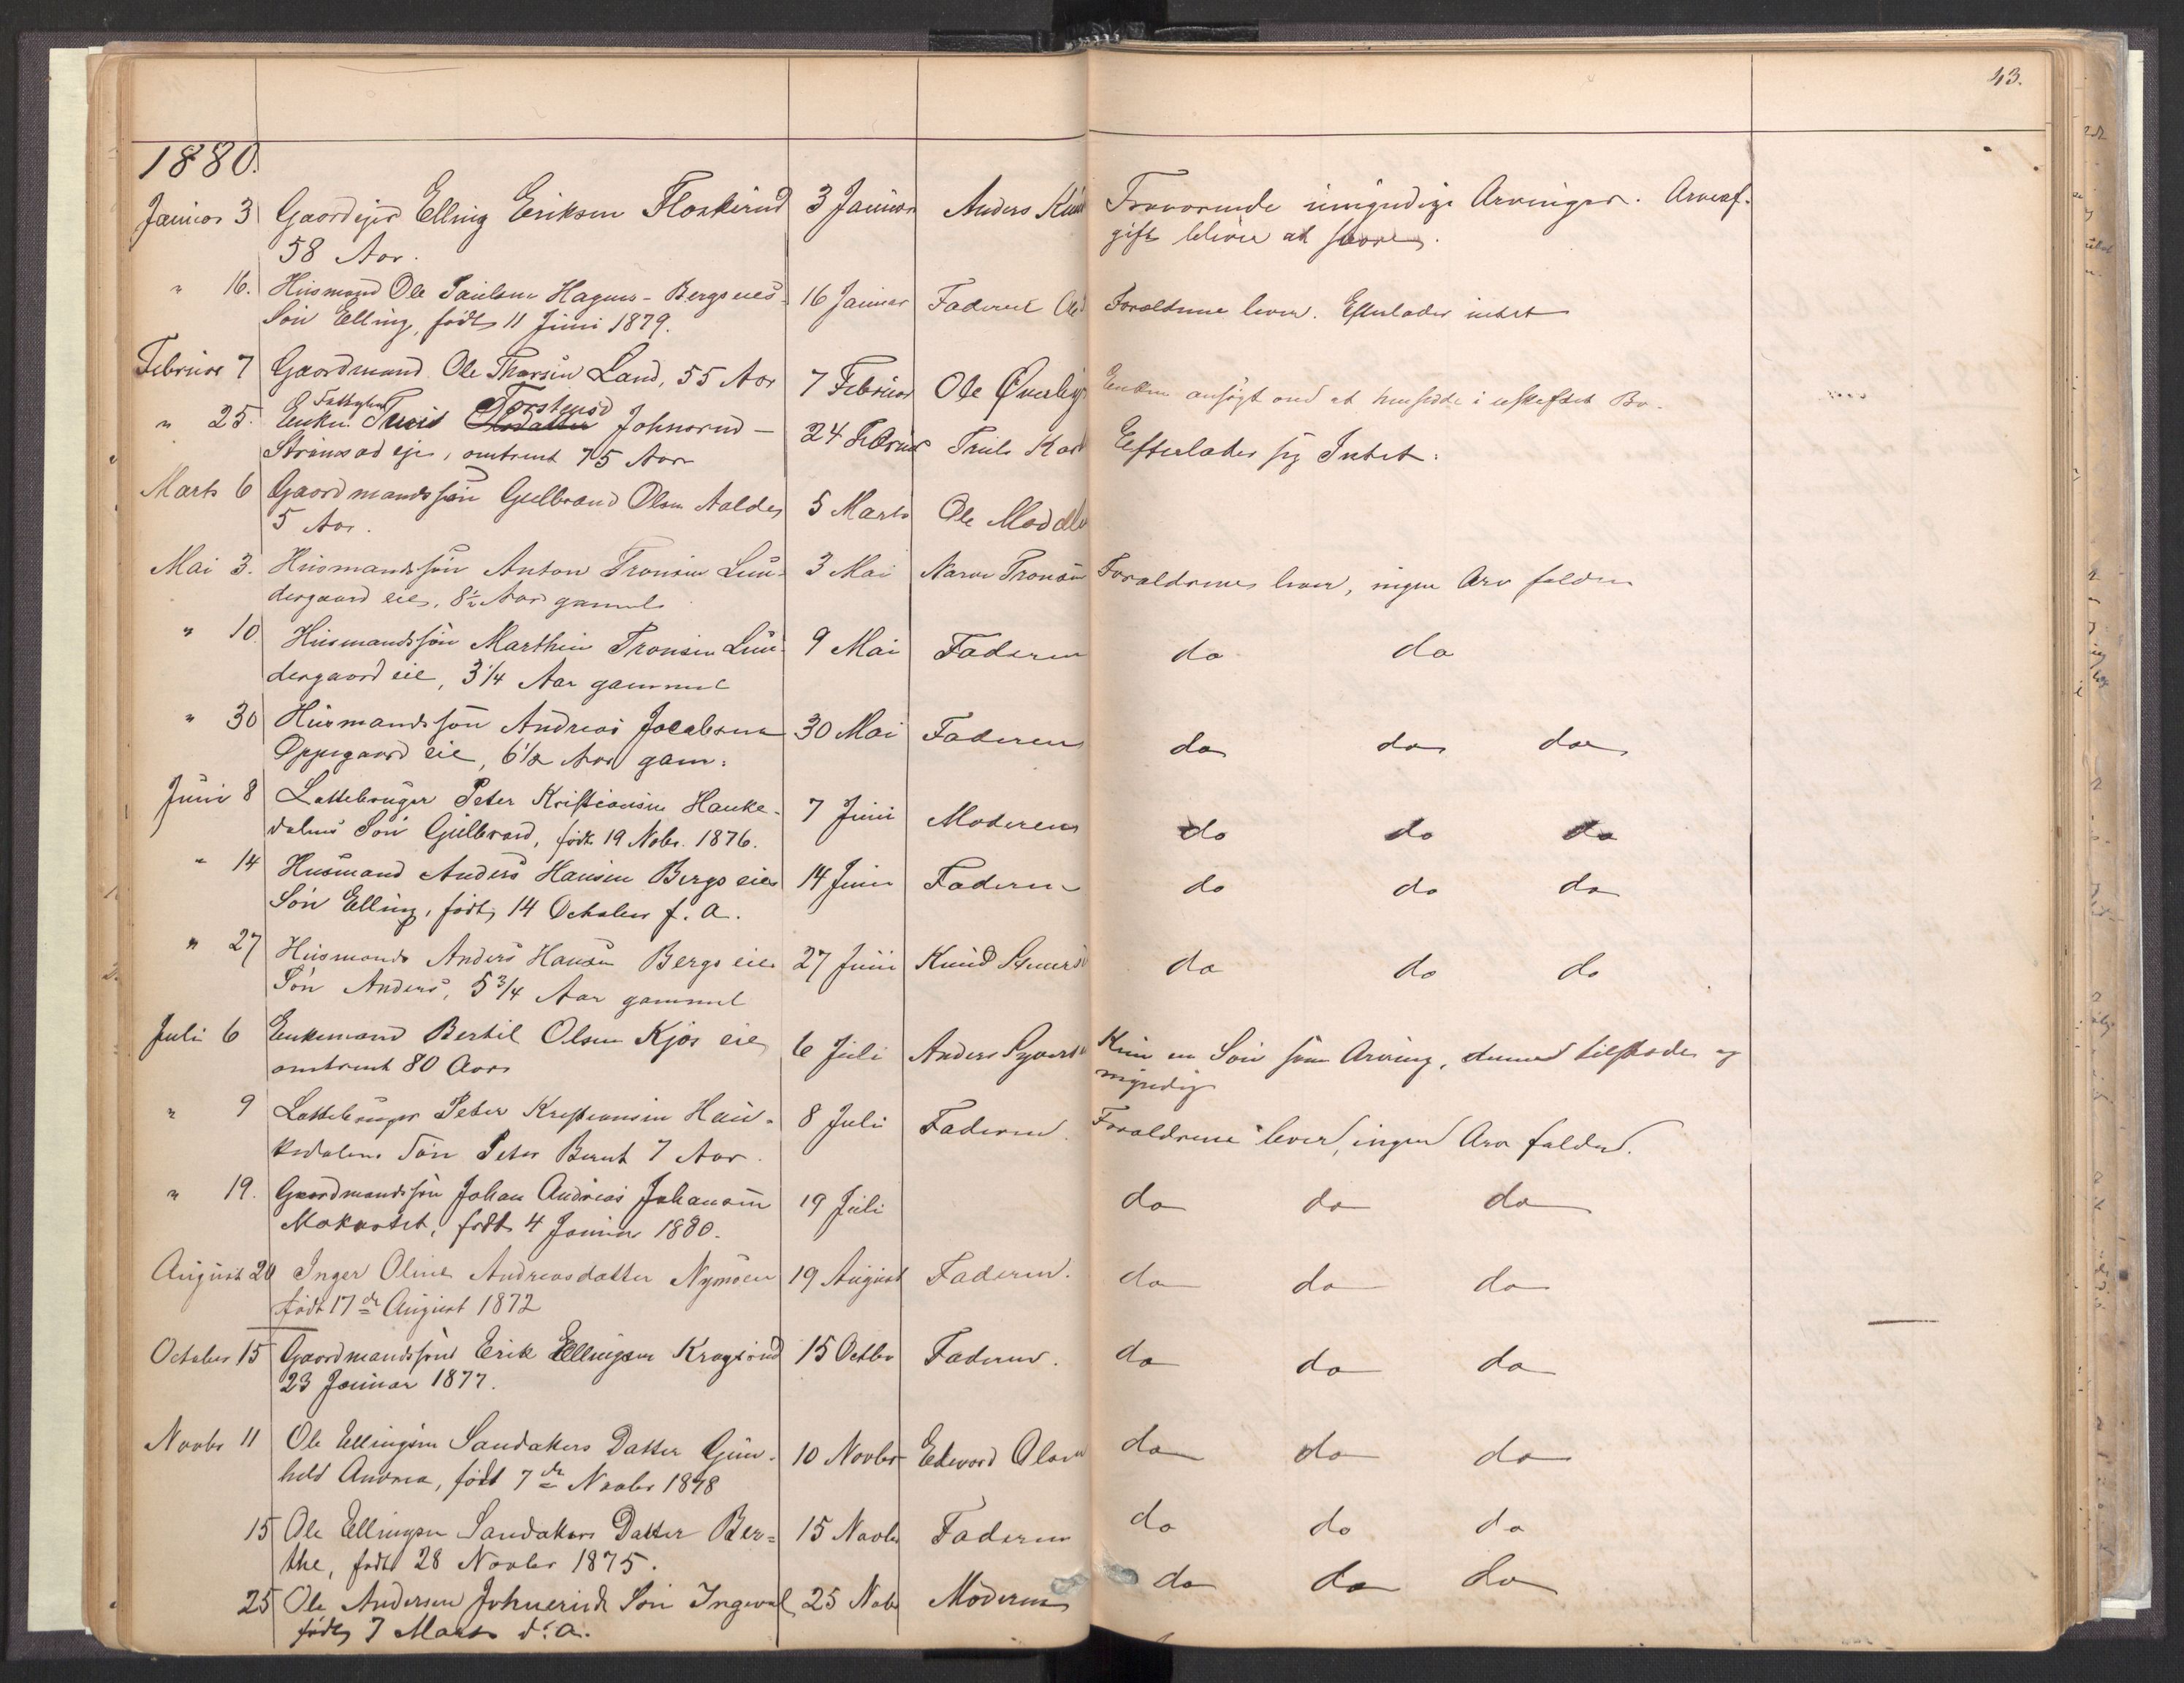 43.
1880.
Januar 3 Gaardejer Elling Eriksen Floskerud 3 Januar Anders Knud Fraværende umyndige Arvinger. Arveaf-
58 Aar. gift bliver at svare.
" 16. Husmand Ole Paulsen Hagens - Bergs eies 16 Januar Faderen Ole Forældrene lever. Efterlader intet
Søn Elling, født 11 Juni 1879.
Februar 7 Gaardmand Ole Thorsen Land, 55 Aar 7 Februar Ole Øverby Enken ansøgt om at hensidde i uskiftet Bo.
Fattiglem Torstensd
" 25. Enke Olsdatter Johnsrud - 24 Februar Truls Efterlader sig Intet.
eje, omtrent 75 Aar
Marts 6 Gaardmandssøn Gulbrand Olsen 5 Marts Ole
5 Aar.
Mai 3. Husmandssøn Anton Tronsen Lun- 3 Mai Narve Tronsen Forældrene lever, ingen Arv falden
dergaard eie, 8½ Aar gammel
" 10. Husmandssøn Marthin Tronsen Lun- 9 Mai Faderen do do
dergaard eie, 3 1/4 Aar gammel
" 30 Husmandssøn Andreas Jacobsen 30 Mai Faderen do do do
Oppegaard eie, 6 1/2 Aar gam:
Juni 8 Lottebruger Peter Kristiansen Hauke- 7 Juni Moderen do do do
dalens Søn Gulbrand, født 19 Nobr. 1876.
" 14 Husmand Anders Hansen Bergs eies 14 Juni Faderen do do do
Søn Elling, født 14 October f. A.
" 27 Husmand Anders Hansen Bergs eies 27 Juni Knud do do do
Søn Anders, 5 3/4 Aar gammel
Juli 6 Enkemand Bertil Olsen Kjos eie 6 Juli Anders Kun en Søn som Arving, denne tilstede og
omtrent 80 Aar myndig
" 9 Lottebruger Peter Kristiansen Hau- 8 Juli Faderen. Forældrene lever, ingen Arv falden.
kedalens Søn Peter Bernt 7 Aar.
" 19. Gaardmandssøn Johan Andreas Johansen 19 Juli do do do
født 4 Januar 1880.
August 20 Inger Oline Andreasdatter Nymoen 19 August Faderen. do do do
født 17de August 1872
October 15 Gaardmandssøn Erik Ellingsen Kragsrud 15 Octbr Faderen. do do do
23 Januar 1877.
Novbr 11 Ole Ellingsen Sandakers Datter Gun- 10 Novbr Edvard Olsen do do do
hild Andrea, født 7de Novbr 1878
15 Ole Ellingsen Sandakers Datter Ber- 15 Novbr Faderen do do do
the, født 28 Novbr 1875.
25 Ole Andersen Johnsruds Søn Ingvald 25 Nobr Moderen do do do
født 7 Marts d. A.